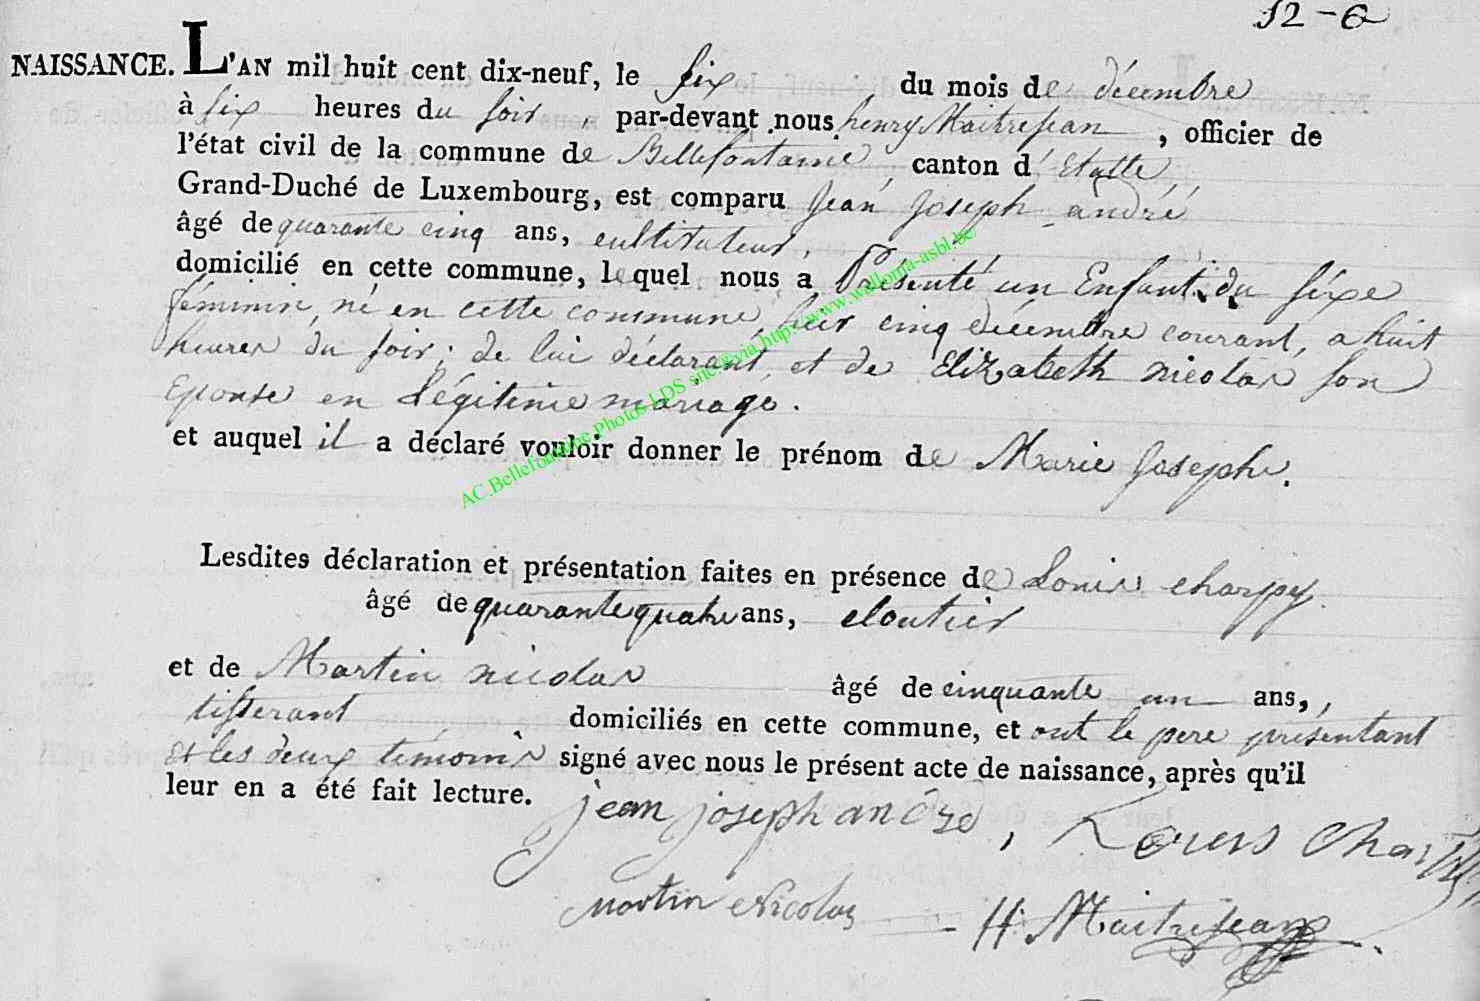 12-6
NAISSANCE. L'AN mil huit cent dix-neuf, le six du mois de décembre
à six heures du soir, par-devant nous henry Maitrejean, officier de
l'état civil de la commune de Bellefontaine, canton d'Etalle,
Grand-Duché de Luxembourg, est comparu jean joseph andré
âgé de quarante cinq ans, cultivateur,
domicilié en cette commune, lequel nous a Présenté un Enfant du séxe
féminin, né en cette commune, hier cinq décembre courant, a huit
heures du soir; de lui déclarant, et de Elizabeth nicolas son
Epouse en légitime mariage.
et auquel il a déclaré vouloir donner le prénom de Marie Josephe.
Lesdites déclaration et présentation faites en présence de Louis charpy
âgé de quarante quatre ans, cloutier
et de Martin nicolas âgé de cinquante un ans,,
tisserant domiciliés en cette commune, et ont le pere présentant
et les deux témoins signé avec nous le présent acte de naissance, après qu'il
leur en a été fait lecture. jean joseph andré, Louis Charpy
martin Nicolas H. Maitrejean
AC.Bellefontaine.Photos LDS sites via http://www.wallonia-asbl.be